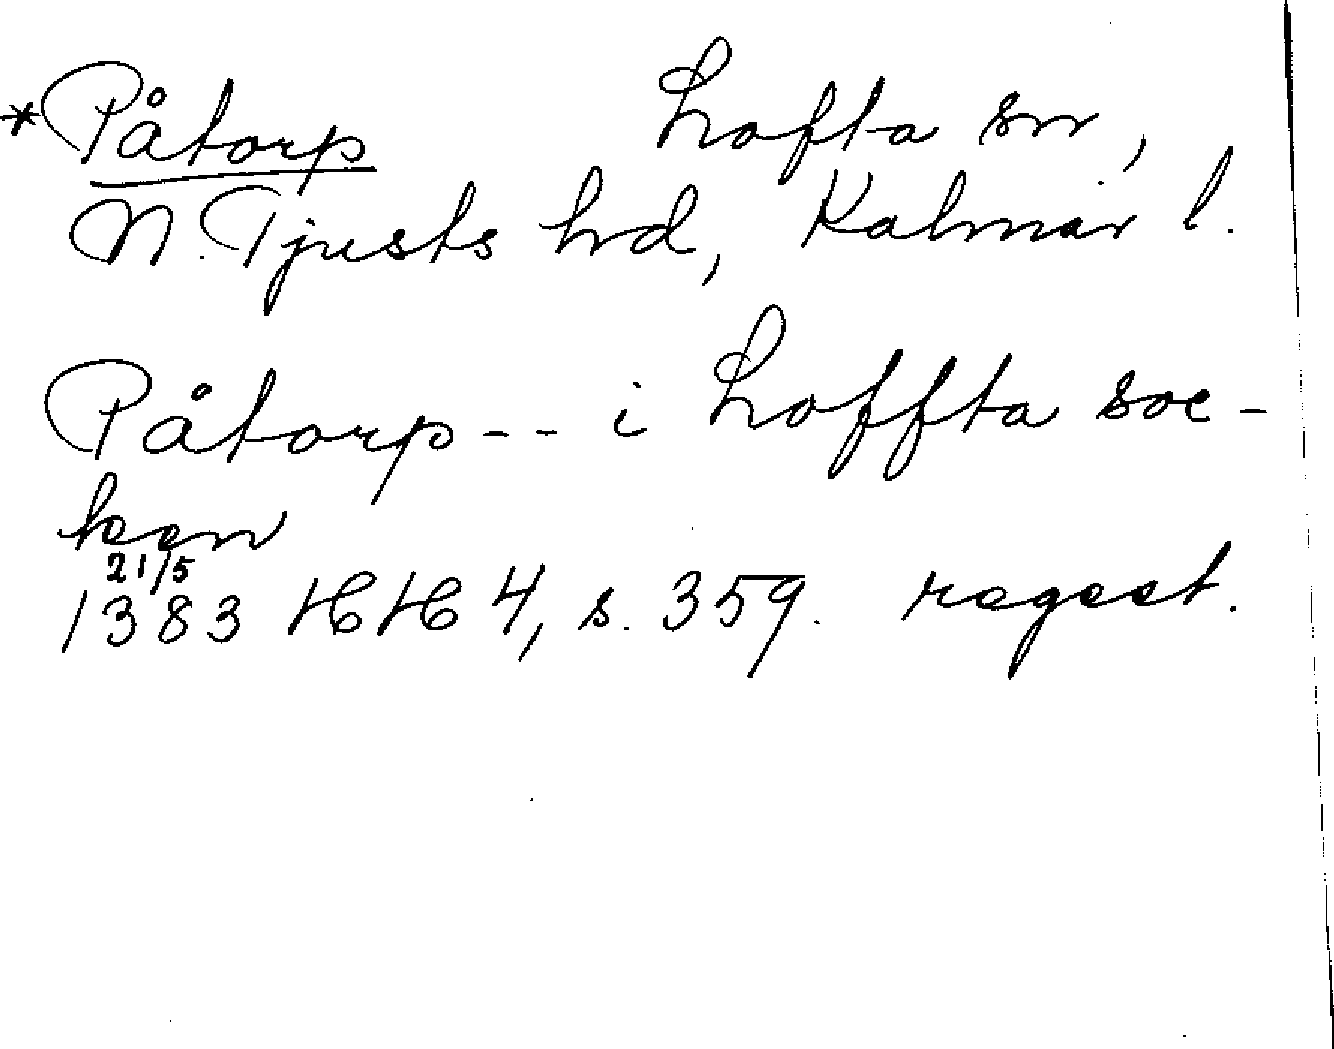 *Påtorp Lofta sn,
N. Tjusts hd, Kalmar l.
Påtorp -- i Loffta soc-
ken
21/5
1383 HH 4, s. 359. regest.